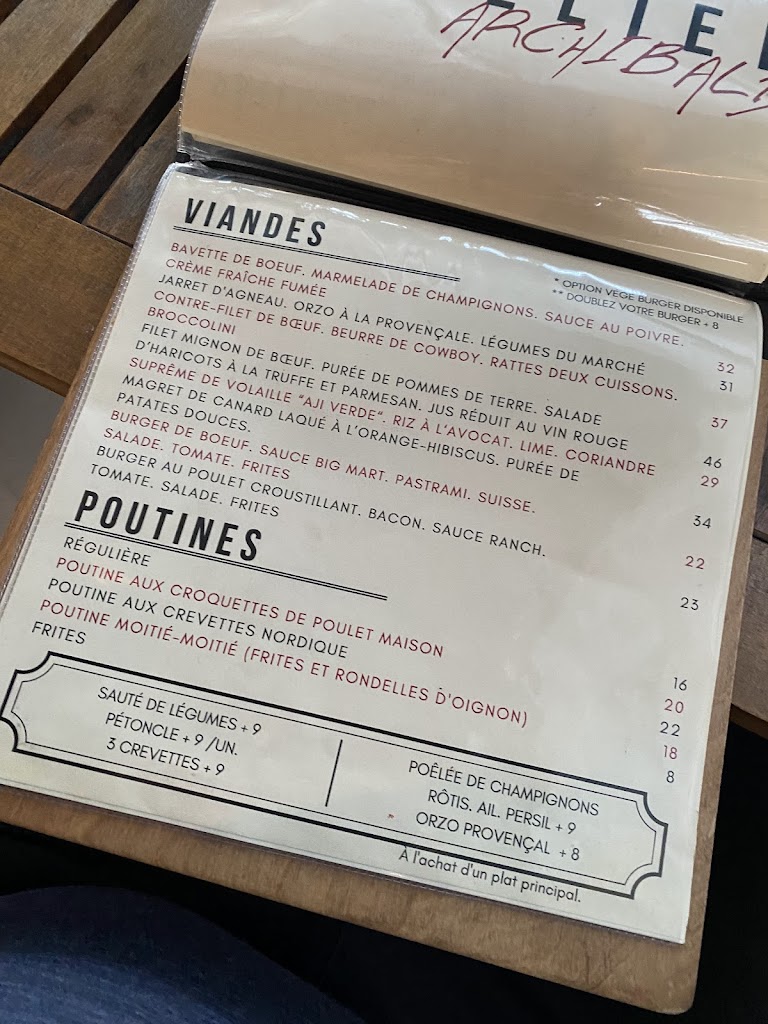 ARCHIBALD
VIANDES
* OPTION VÉGÉ BURGER DISPONIBLE
** DOUBLEZ VOTRE BURGER + 8
BAVETTE DE BOEUF. MARMELADE DE CHAMPIGNONS. SAUCE AU POIVRE.
CRÈME FRAÎCHE FUMÉE 32
JARRET D'AGNEAU. ORZO À LA PROVENÇALE. LÉGUMES DU MARCHÉ 31
CONTRE-FILET DE BŒUF. BEURRE DE COWBOY. RATTES DEUX CUISSONS.
BROCCOLINI 37
FILET MIGNON DE BŒUF. PURÉE DE POMMES DE TERRE. SALADE
D'HARICOTS À LA TRUFFE ET PARMESAN. JUS RÉDUIT AU VIN ROUGE 46
SUPRÊME DE VOLAILLE "AJI VERDE". RIZ À L'AVOCAT. LIME. CORIANDRE 29
MAGRET DE CANARD LAQUÉ À L'ORANGE-HIBISCUS. PURÉE DE
PATATES DOUCES. 34
BURGER DE BOEUF. SAUCE BIG MART. PASTRAMI. SUISSE.
SALADE. TOMATE. FRITES 22
BURGER AU POULET CROUSTILLANT. BACON. SAUCE RANCH.
TOMATE. SALADE. FRITES 23
POUTINES
RÉGULIÈRE 16
POUTINE AUX CROQUETTES DE POULET MAISON 20
POUTINE AUX CREVETTES NORDIQUE 22
POUTINE MOITIÉ-MOITIÉ (FRITES ET RONDELLES D'OIGNON) 18
FRITES 8
SAUTÉ DE LÉGUMES + 9
PÉTONCLE + 9 /UN.
3 CREVETTES + 9
POÊLÉE DE CHAMPIGNONS
RÔTIS. AIL. PERSIL + 9
ORZO PROVENÇAL + 8
À l'achat d'un plat principal.